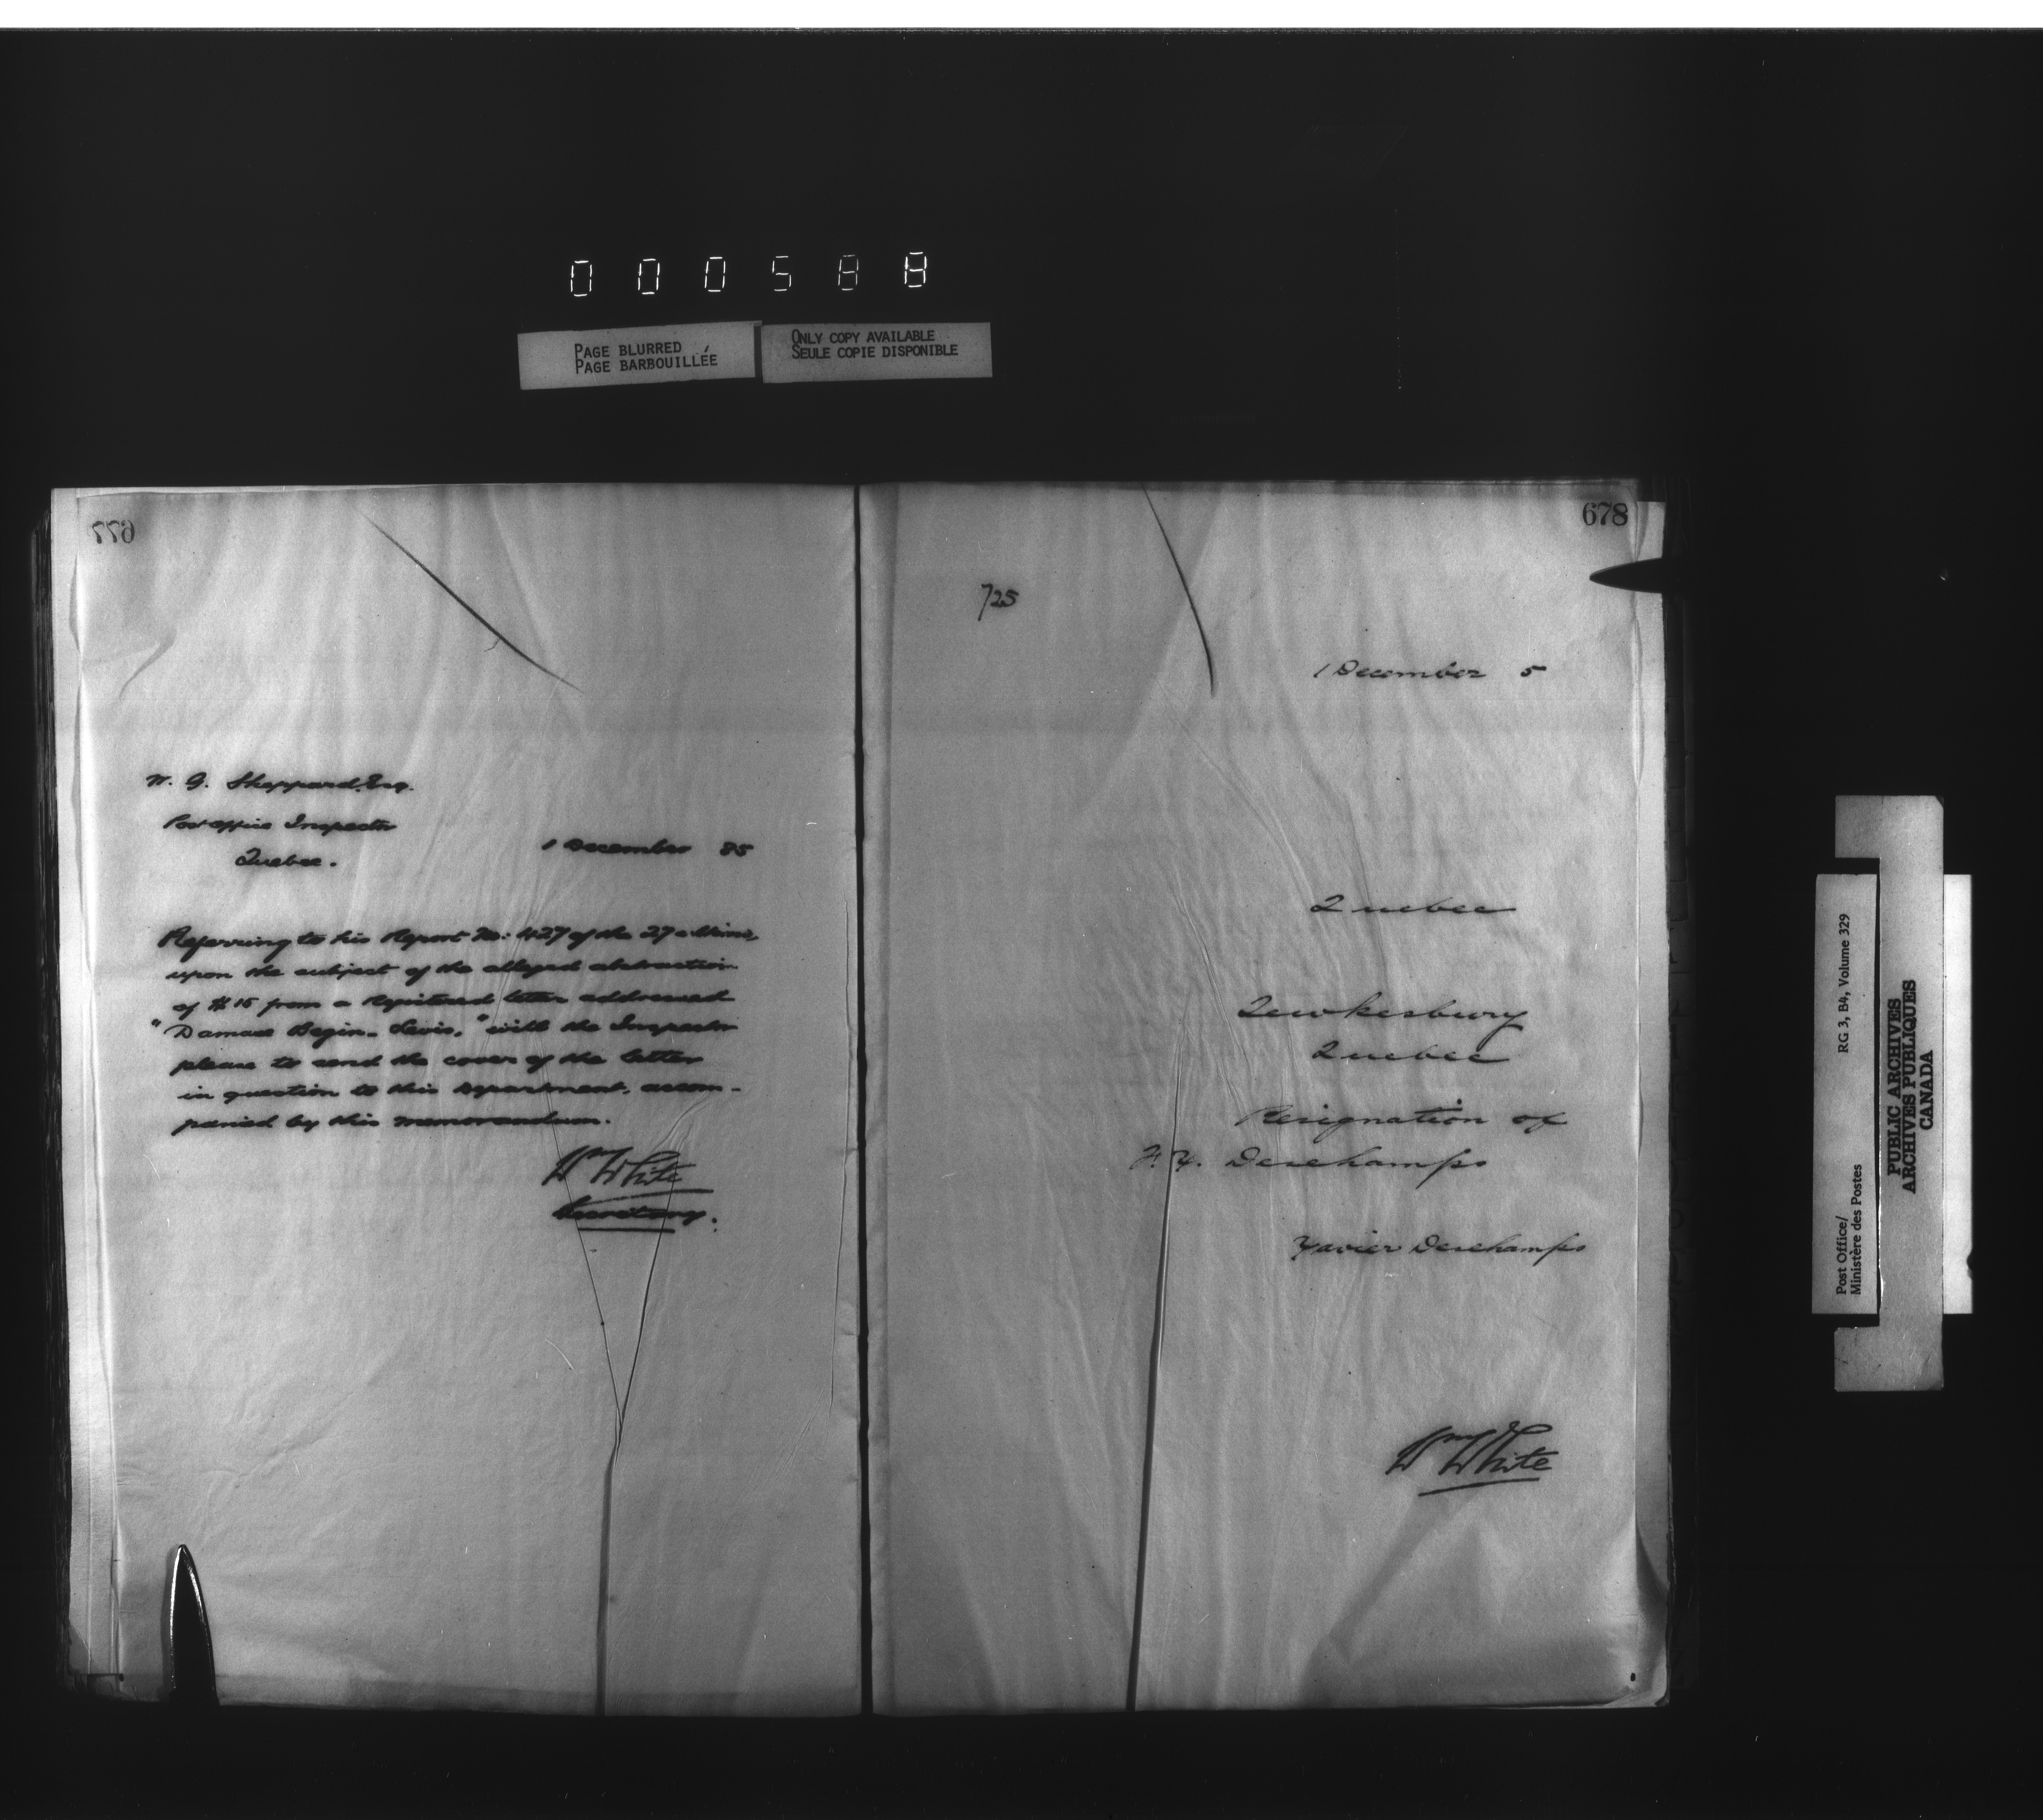 000588
PAGE BLURRED
PAGE BARBOUILLÉE
ONLY COPY AVAILABLE
SEULE COPIE DISPONIBLE
677
W. G. Sheppard, Esq.
Post Office Inspector
Quebec.
1 December 85
Referring to his Report No. 427 of the 27 ultimo,
upon the subject of the alleged abstraction
of $15 from a Registered letter addressed
"Damase Begin - Levis," will the Inspector
please to send the cover of the letter
in question to this Department, accom-
panied by this memorandum.
Wm White
Secretary.
678
725
1 December 5
Quebec
Tewkesbury
Quebec
Resignation of
F. X. Deschamps
Xavier Deschamps
Wm White
Post Office/
Ministère des Postes
RG 3, B4, Volume 329
PUBLIC ARCHIVES
ARCHIVES PUBLIQUES
CANADA